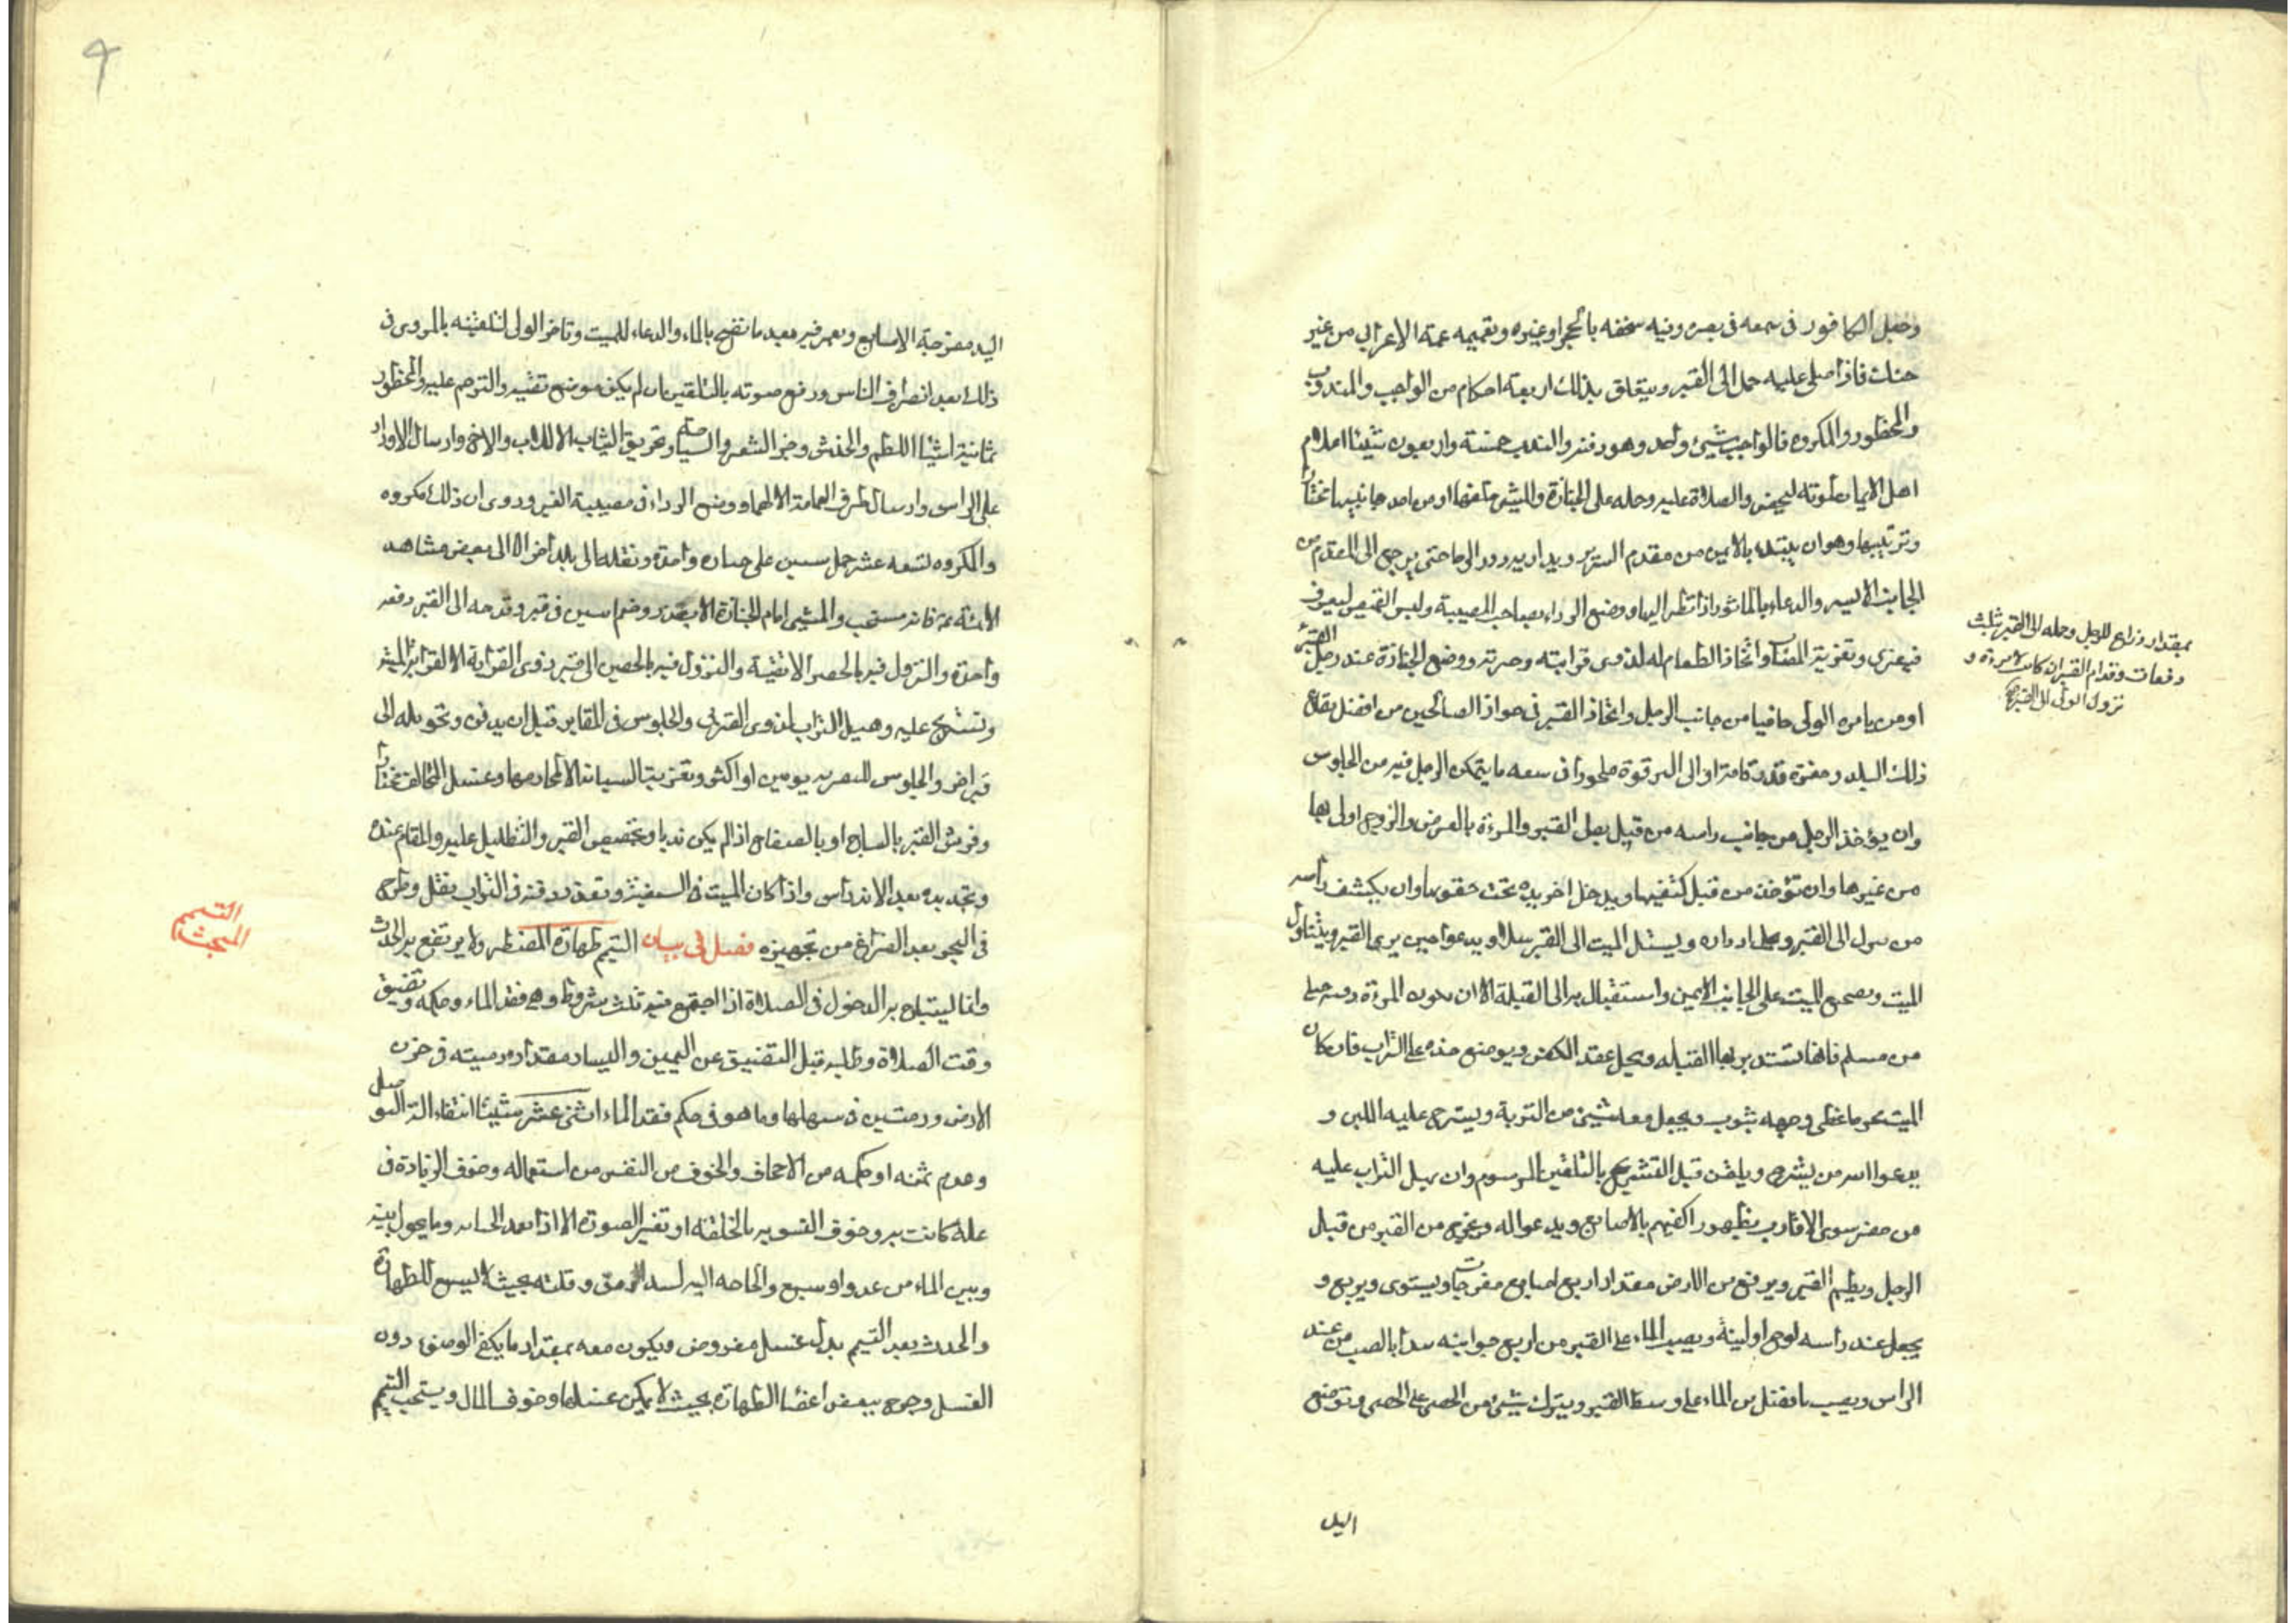 وجعل الكافور فى سمعه فى بصره وفيه سحقه بالحجر او غيره وتعميمه عمة الاعرابى من غير
حنك فاذا صلى عليه حمل الى القبر ويتعلق بذلك اربعة احكام من الواجب والمندوب
والمحظور والمكروه فالواجب شىء واحد وهو دفنه والندب خمسة واربعون شيئا اعلام
اهل الايمان بموته ليحضر والصلاة عليه وحمله على الجنازة والمشى خلفها او من احد جانبيها
وتربيعها وهو ان يبتدء بالايمن من مقدم السرير ويدار به دور الرحا حتى يرجع الى المقدم من
الجانب الايسر والدعاء بالماثور اذا نظر اليها ووضع الرداء صاحب المصيبة ولبس القميص ليعرف
فيعزى وتعزية المصاب واتخاذ الطعام له لذوى قرابته وجيرته ووضع الجنازة عند رجل القبر
او من يامره الولى حافيا من جانب الرجل واتخاذ القبر فى جوار الصالحين من افضل بقاع
ذلك البلد وحفره قدر قامة او الى الترقوة ملحودا فى سعه ما يتمكن الرجل فيه من الجلوس
وان يؤخذ الرجل من جانب راسه من قبل رجل القبر والمرءة بالعرض والزوج اولى بها
من غيرها وان تؤخذ من قبل كتفيها ويدخل اخر يده تحت حقويها وان يكشف رأسه
من ينزل الى القبر ويحل ازراره ويسل الميت الى القبر سلا ويدعوا حين يرى القبر ويتناول
الميت ويضجع الميت على الجانب الايمن واستقبال به الى القبلة الا ان يكون المرءة ذميه حبلى
من مسلم فانها تستدبر بها القبله ويحل عقد الكفن ويوضع خده على التراب فان كان
الميت محرما غطى وجهه بثوب ويجعل معه شىء من التربة ويسرج عليه اللبن و
يدعوا الله من يشرج ويلقن قبل التشريج بالتلقين المرسوم وان يهيل التراب عليه
من حضر سوى الاقارب بظهور اكفهم بالاصابع ويدعوا له ويخرج من القبر من قبل
الرجل ويطم القبر ويرفع من الارض مقدار اربع اصابع مفرجات ويستوى ويربع و
يجعل عند راسه لوح او لبنة ويصب الماء على القبر من اربع جوانبه يبدأ بالصب من عند
الراس ويصب ما فضل من الماء على وسط القبر ويترك شىء من الحصى على الحصى وتوضع
بمقدار ذراع للرجل وحمله الى القبر ثلث
دفعات وقدام القبر ان كانت امرءة و
نزول الولى الى القبر
اليد
اليد مفرجة الاصابع ويغمز فيه بعد ما نضح بالماء والدعاء للميت وتاخر الولى لتلقينه بالمروى فى
ذلك بعد انصراف الناس ورفع صوته بالتلقين ان لم يكن موضع تقيه والترحم عليه والمحظور
ثمانية اشياء اللطم والخدش وجز الشعر والصياح وتخريق الثياب الا للاب والاخ وارسال الازار
على الراس وارسال طرف العمامة الا لهما ووضع الرداء فى مصيبة الغير وروى ان ذلك مكروه
والمكروه تسعه عشر حمل ميتين على جنازه واحدة ونقله الى بلد اخر الا الى بعض مشاهد
الائمة فانه مستحب والمشى امام الجنازة الا بعذر وضم ميتين فى قبر وقدحه الى القبر دفعه
واحدة والنزول فيه بالخف الا لتقية والنزول فيه بالخفين الى قبر ذوى القرابة الا لقرابة الميت
وتشرج عليه وهيل التراب لذوى القربى والجلوس فى المقابر قبل ان يدفن وتحويله الى
قبر اخر والجلوس للتعزية يومين او اكثر وتعزية النساء الا لمحارمها وغسل المخالف مختارا
وفرش القبر بالساج او بالصفاح اذا لم يكن نديا وتجصيص القبر والتظليل عليه والمقام عنده
وتجديده بعد الاندراس واذا كان الميت فى السفينة وتعذر دفنه فى التراب يثقل وطرح
فى البحر بعد الفراغ من تجهيزه فصل فى بيان التيمم طهارة المضطر ولا يرتفع به الحدث
وانما يستباح به الدخول فى الصلاة اذا اجتمع فيه ثلث شروط وهى فقد الماء وحكمه وتضيق
وقت الصلاة وطلبه قبل التضيق عن اليمين واليسار مقدار رمية فى حزن
الارض ورميتين فى سهلها وما هو فى حكم فقد الماء اثنى عشر شيئا انتفاء الة التوصل
وعدم ثمنه او حكمه من الاجحاف والخوف من النفس من استعماله وخوف الزيادة فى
علة كانت به وخوف التشويه بالخلقة او تغير الصورة الا اذا تعمد الجنابه وما يحول بينه
وبين الماء من عدو او سبع والحاجه اليه لسد الرمق وقلته بحيث لا يسع للطهارة
والحدث بعد التيمم بدل غسل مفروض ويكون معه بمقدار ما يكفى الوضوء دون
الغسل وجرح ببعض اعضاء الطهارة بحيث لا يمكن غسلها وخوف المال ويستحب التيمم
التيمم
المبحث